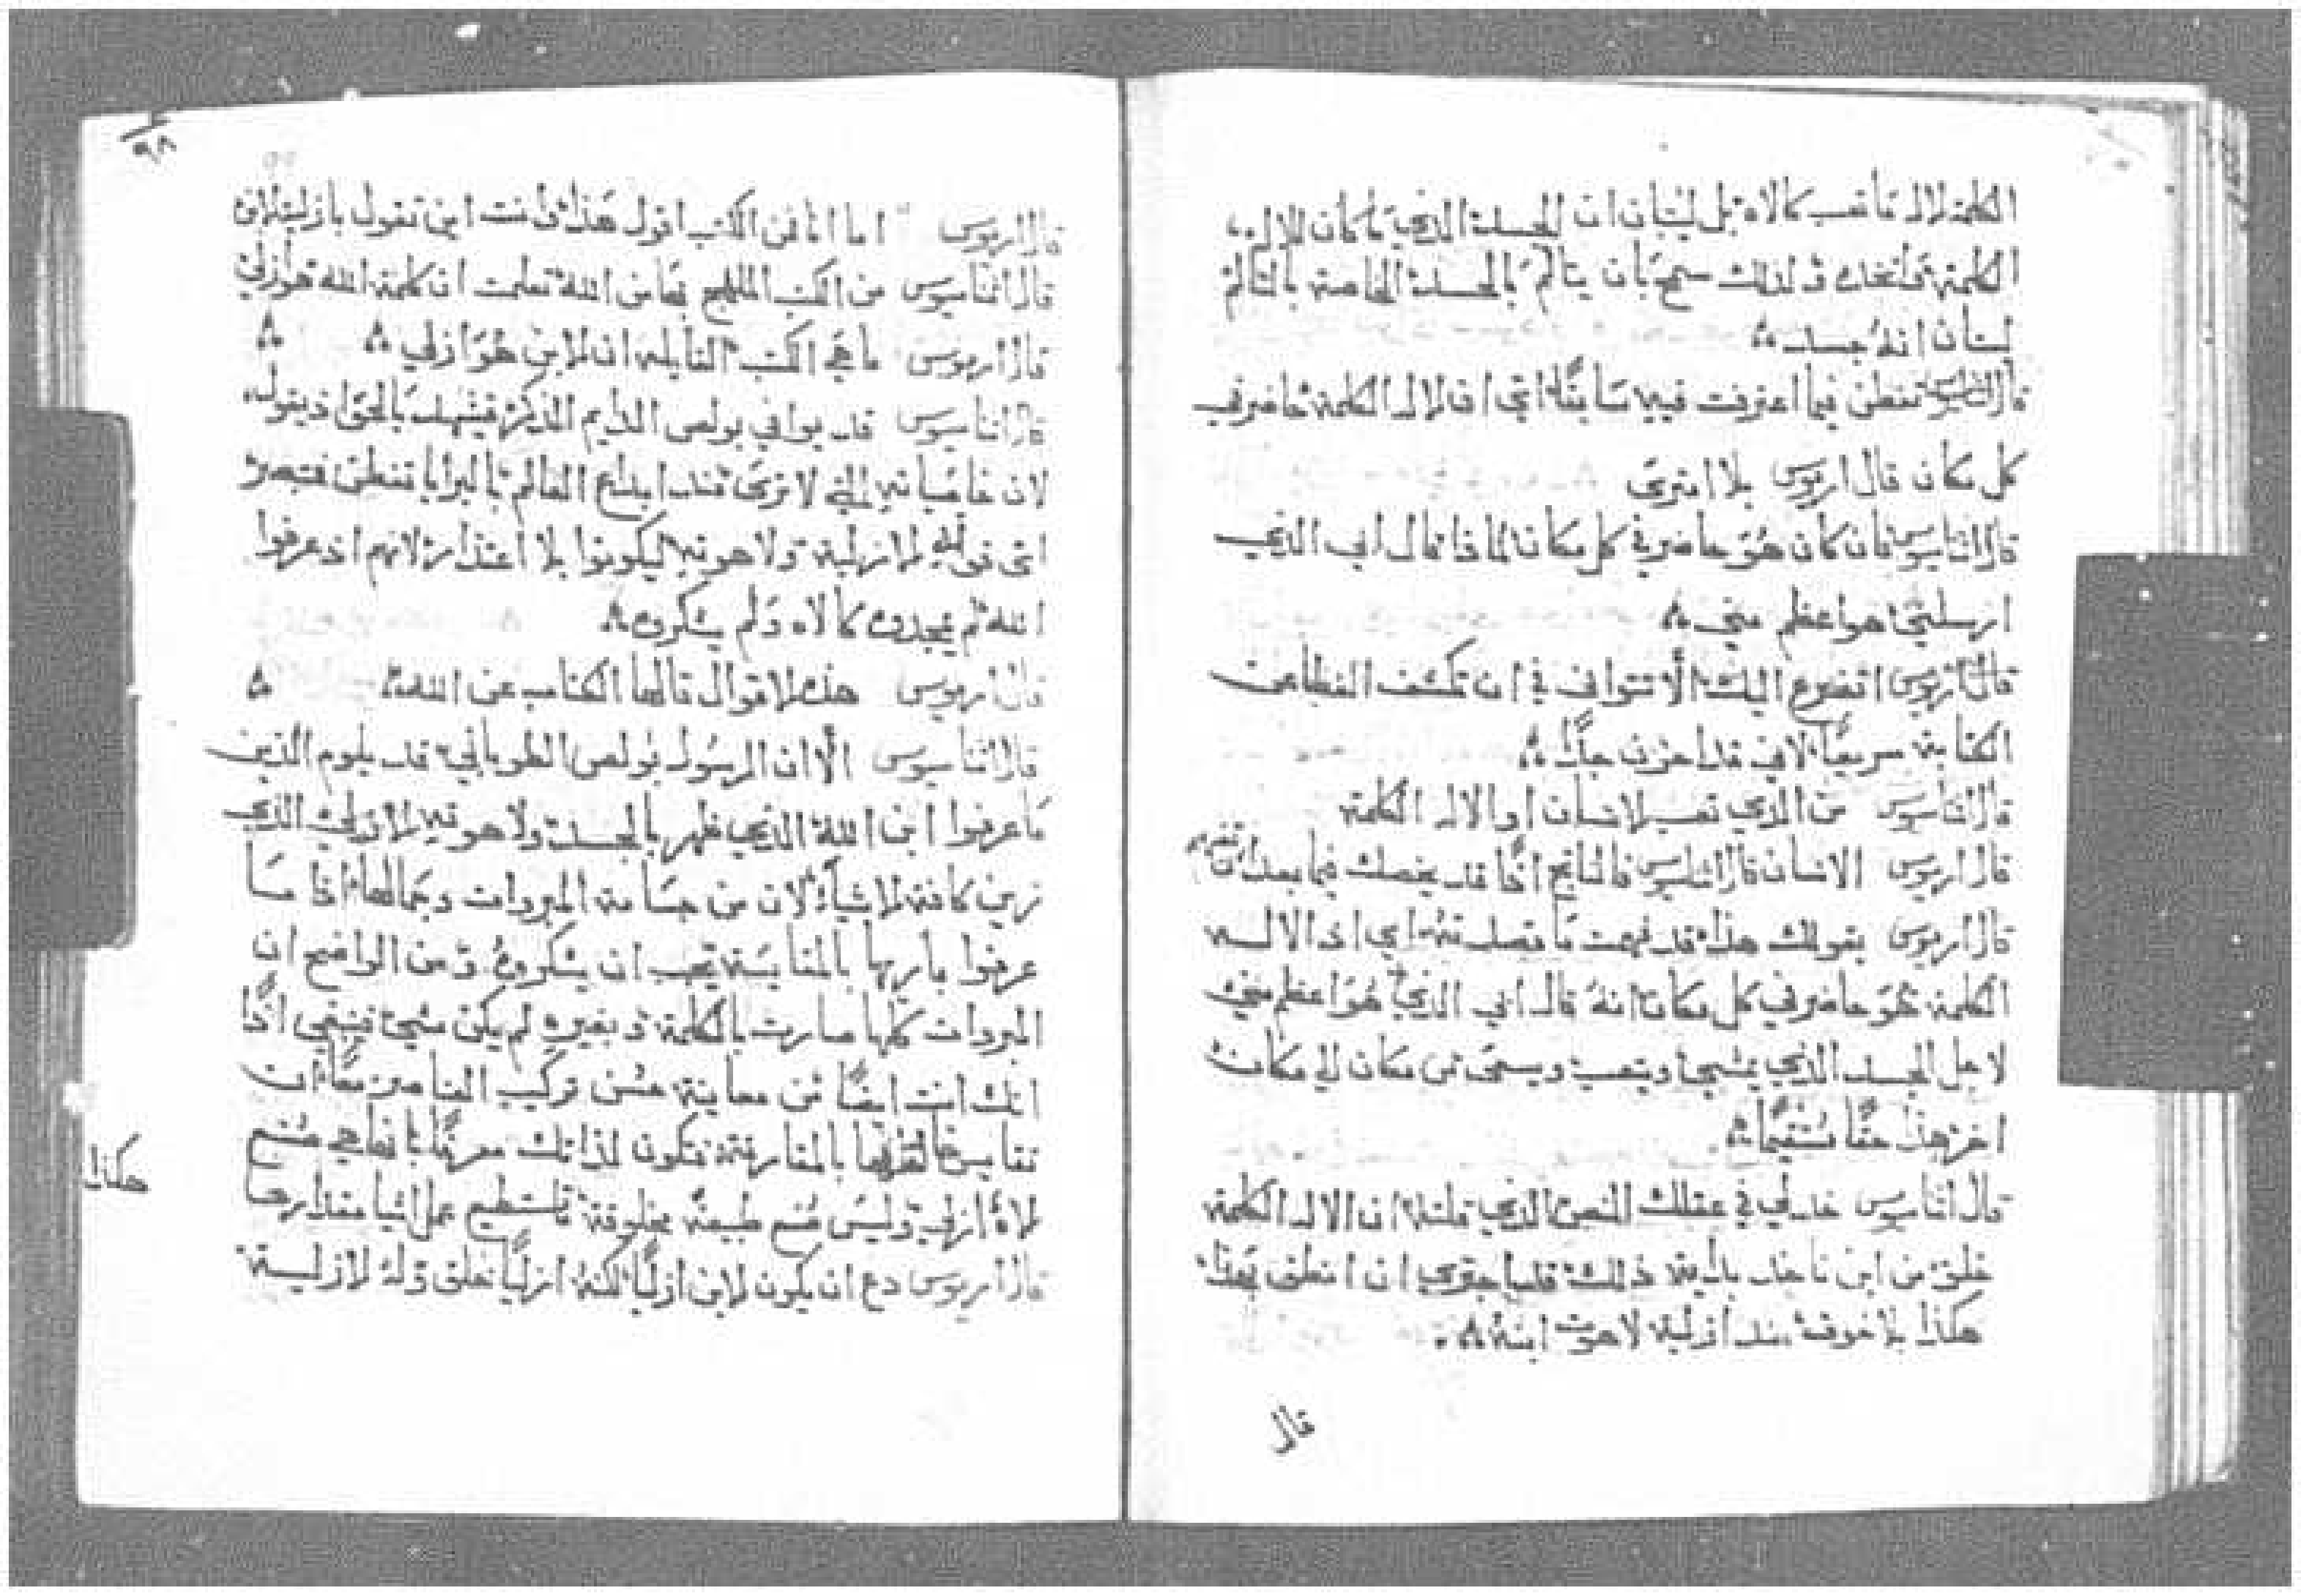 الكلمة لاله ما تعب كالاه بل ليتبان ان الجسد الذي ما كان للاله
الكلمة فاتخذه ولذلك سمح بان يتالم بالجسد الخاصة بالتالم
ليتبان انه جسد
قال اثناسيوس تفطن فيما اعترفت فيه سابقًا اي ان لاله الكلمة حاضر في
كل مكان قال اريوس بلا امترى
قال اثناسيوس فان كان هو حاضر في كل مكان لماذا قال ابي الذي
ارسلني هو اعظم مني
قال اريوس اتضرع اليك الا تتوانى في ان تكشف
الكتابة سريعًا لاني قد احزن جدًّا
قال اثناسيوس من الذي تعب لانسان او الاله الكلمة
قال اريوس الانسان قال اثناسيوس فالناتج اذًا قد يخصك فيما بعد ان تفهم
قال اريوس بقولك هذا قد فهمت ما تقصد منه اي اذ الاله
الكلمة هو حاضر في كل مكان انه قال ابي الذي هو اعظم مني
لاجل الجسد الذي يمشي ويتعب ويسعى من مكان الى مكان
اخر هذا حقًّا مستقيمًا
قال اثناسيوس خد لي في عقلك النص الذي قلته ان الاله الكلمة
خلق من اين ناخد باية ذلك قد اجترى ان انطق بهذا
هكذا بلا خوف ضد ازلية لاهوت ابنه
قال
٩٨
قال اريوس اما انا فمن الكتب اقول هذا وانت اين تقول بازلية لابن
قال اثناسيوس من الكتب الملهج بها من الله تعلمت ان كلمة الله هو ازلي
قال اريوس ما هي الكتب القايله ان لابن هو ازلي
قال اثناسيوس قد يوافي بولص الدايم الذكر فيشهد بالحق اذ يقول
لان خاصياته التي لا ترى منذ ابداع العالم بالبرايا تفطن فتبصر
اي قوته لازلية ولاهوته ليكونوا بلا اعتذار لانهم اذ عرفوا
الله لم يمجدوه كالاه ولم يشكروه
قال اريوس هذه لاقوال قالها الكتاب عن الله
قال اثناسيوس الا ان الرسول بولص الطوباني قد يلوم الذين
ما عرفوا ابن الله الذي ظهر بالجسد ولاهوته لازلي الذي
زين كافة لاشياء لان من جسامة المبروات وجمالها اذا ما
عرفوا باريها بالمقايسة يجب ان يشكروه ومن الواضح ان
المبروات كلها صارت بالكلمة وبغيره لم يكن شي فينبغي اذًا
انك انت ايضًا من معاينة حسن تركيب العناصر معًا ان
تقايس خالقها بالمقارفة فتكون لذاتك معرفًا بانها هي صنع
لاه ازلي وليس صنع طبيعة مخلوقة تستطيع عمل اشيا مقدارها
هكذا
قال اريوس دع ان يكون لابن ازليًّا لكنه ازليًّا خلق وله لازلية